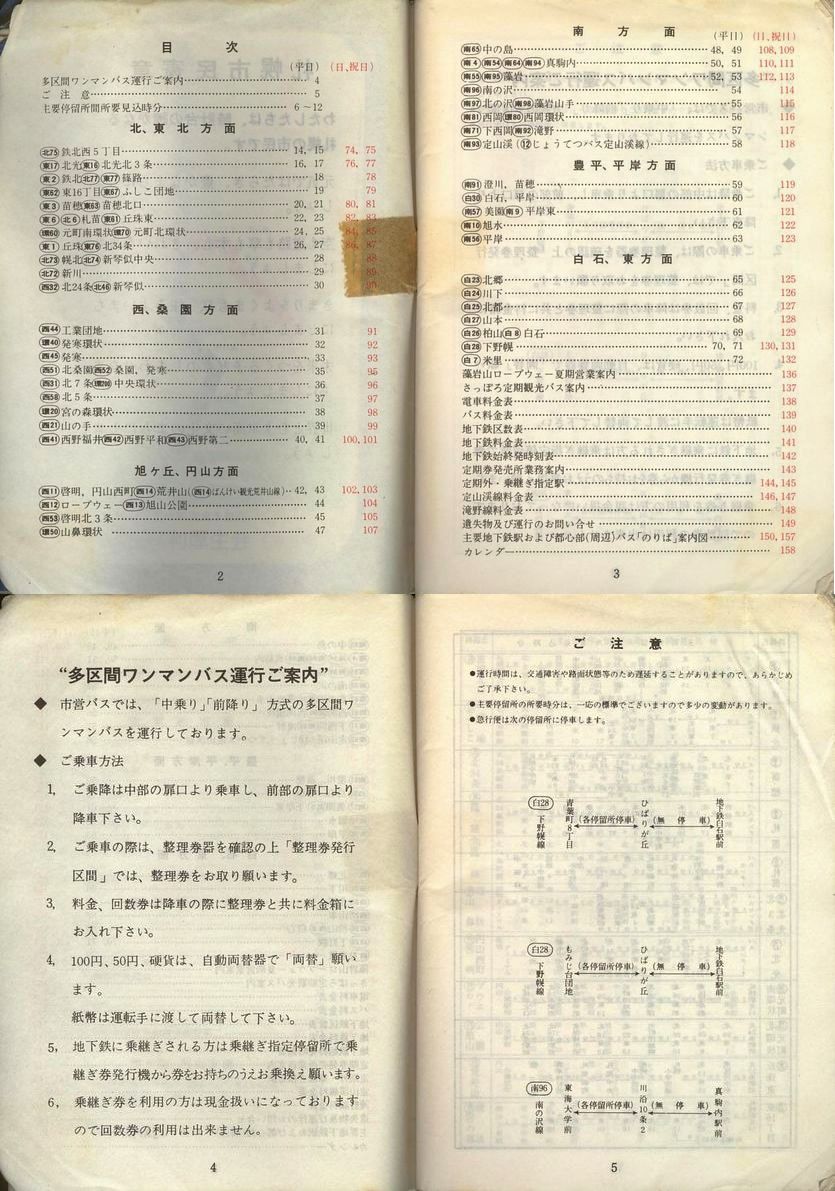 目次
(平日) (日、祝日)
多区間ワンマンバス運行ご案内 4
ご注意 5
主要停留所間所要見込時分 6～12
北、東北方面
北75 鉄北西5丁目 14, 15 74, 75
東17 北光 東16 北光北3条 16, 17 76, 77
東2 鉄北 北77 東77 篠路 18 78
東62 東16丁目 東67 ふしこ団地 19 79
東3 苗穂 東63 苗穂北口 20, 21 80, 81
東6 北6 札苗 東61 丘珠東 22, 23 82, 83
環60 元町南環状 環70 元町北環状 24, 25 84, 85
東1 丘珠 東76 北34条 26, 27 86, 87
北73 幌北 北74 新琴似中央 28 88
北72 新川 29 89
西32 北24条 北46 新琴似 30
西、桑園方面
西44 工業団地 31 91
環40 発寒環状 32 92
西45 発寒 33 93
西51 北桑園 西52 桑園，発寒 35 95
西31 北7条 環200 中央環状 36 96
西58 北5条 37 97
環20 宮の森環状 38 98
西21 山の手 39 99
西41 西野福井 西42 西野平和 西43 西野第二 40, 41 100, 101
旭ヶ丘、円山方面
西11 啓明，円山西町 西14 荒井山(西14ばんけい観光荒井山線) 42, 43 102, 103
西12 ロープウェー 西13 旭山公園 44 104
西53 啓明北3条 45 105
環50 山鼻環状 47 107
2
南方面
(平日) (日、祝日)
南65 中の島 48, 49 108, 109
南4 南54 南64 南94 真駒内 50, 51 110, 111
南55 南95 藻岩 52, 53 112, 113
南96 南の沢 54 114
南97 北の沢 南98 藻岩山手 55 115
南81 西岡 環80 西岡環状 56 116
南71 下西岡 南92 滝野 57 117
南93 定山渓(12じょうてつバス定山渓線) 58 118
豊平、平岸方面
南91 澄川，苗穂 59 119
白30 白石，平岸 60 120
南57 美園 南9 平岸東 61 121
南10 旭水 62 122
南56 平岸 63 123
白石、東方面
白23 北郷 65 125
白24 川下 66 126
白25 北都 67 127
白27 山本 68 128
白26 柏山 白8 白石 69 129
白28 下野幌 70, 71 130, 131
白7 米里 72 132
藻岩山ロープウェー夏期営業案内 136
さっぽろ定期観光バス案内 137
電車料金表 138
バス料金表 139
地下鉄区数表 140
地下鉄料金表 141
地下鉄始終発時刻表 142
定期券発売所業務案内 143
定期外・乗継ぎ指定駅 144, 145
定山渓線料金表 146, 147
滝野線料金表 148
遺失物及び運行のお問い合せ 149
主要地下鉄駅および都心部(周辺)バス「のりば」案内図 150, 157
カレンダー 158
3
“多区間ワンマンバス運行ご案内”
◆ 市営バスでは、「中乗り」「前降り」方式の多区間ワ
ンマンバスを運行しております。
◆ ご乗車方法
1, ご乗降は中部の扉口より乗車し、前部の扉口より
降車下さい。
2, ご乗車の際は、整理券器を確認の上「整理券発行
区間」では、整理券をお取り願います。
3, 料金、回数券は降車の際に整理券と共に料金箱に
お入れ下さい。
4, 100円、50円、硬貨は、自動両替器で「両替」願い
ます。
紙幣は運転手に渡して両替して下さい。
5, 地下鉄に乗継ぎされる方は乗継ぎ指定停留所で乗
継ぎ券発行機から券をお持ちのうえお乗換え願います。
6, 乗継ぎ券を利用の方は現金扱いになっております
ので回数券の利用は出来ません。
4
ご注意
●運行時間は、交通障害や路面状態等のため遅延することがありますので、あらかじめ
ご了承下さい。
●主要停留所の所要時分は、一応の標準でございますので多少の変動があります。
●急行便は次の停留所に停車します。
白28 下野幌線 青葉町8丁目 (各停留所停車) ひばりが丘 (無停車) 地下鉄白石駅前
白28 下野幌線 もみじ台団地 (各停留所停車) ひばりが丘 (無停車) 地下鉄白石駅前
南96 南の沢線 東海大学前 (各停留所停車) 川沿10条2 (無停車) 真駒内駅前
5